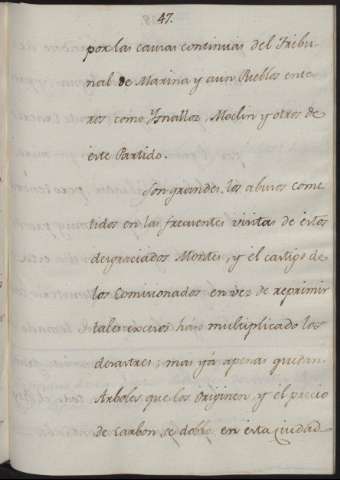 47.
por las causas continuas del Tribu-
nal de Marina y aun Pueblos ente-
ros como Ysnalloz, Moclin y otros de
este Partido.
Son grandes los abusos come-
tidos en las frecuentes visitas de estos
desgraciados Montes, y el castigo de
los Comisionados en vez de reprimir
tales excesos han multiplicado los
desastres; mas yá apenas quedan
Arboles que los originen y el précio
de Carbon se doblo en esta Ciudad